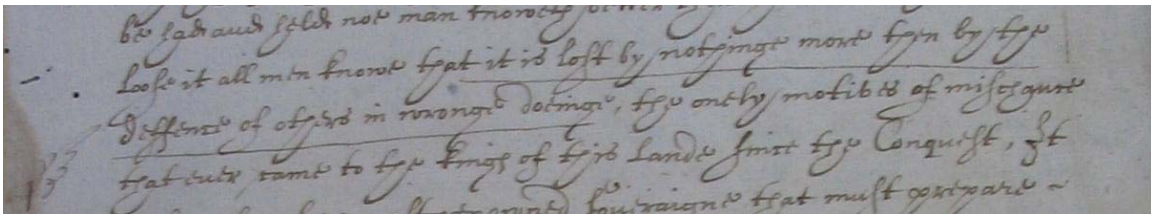 be had and held noe man knoweth better
Loose it all men knowe that it is lost by nothinge more then by the
deffence of others in wronge doeinge, the onely motives of mischance
that ever came to the kings of this Lande since the Conquest, It
soveraigne that must prepare